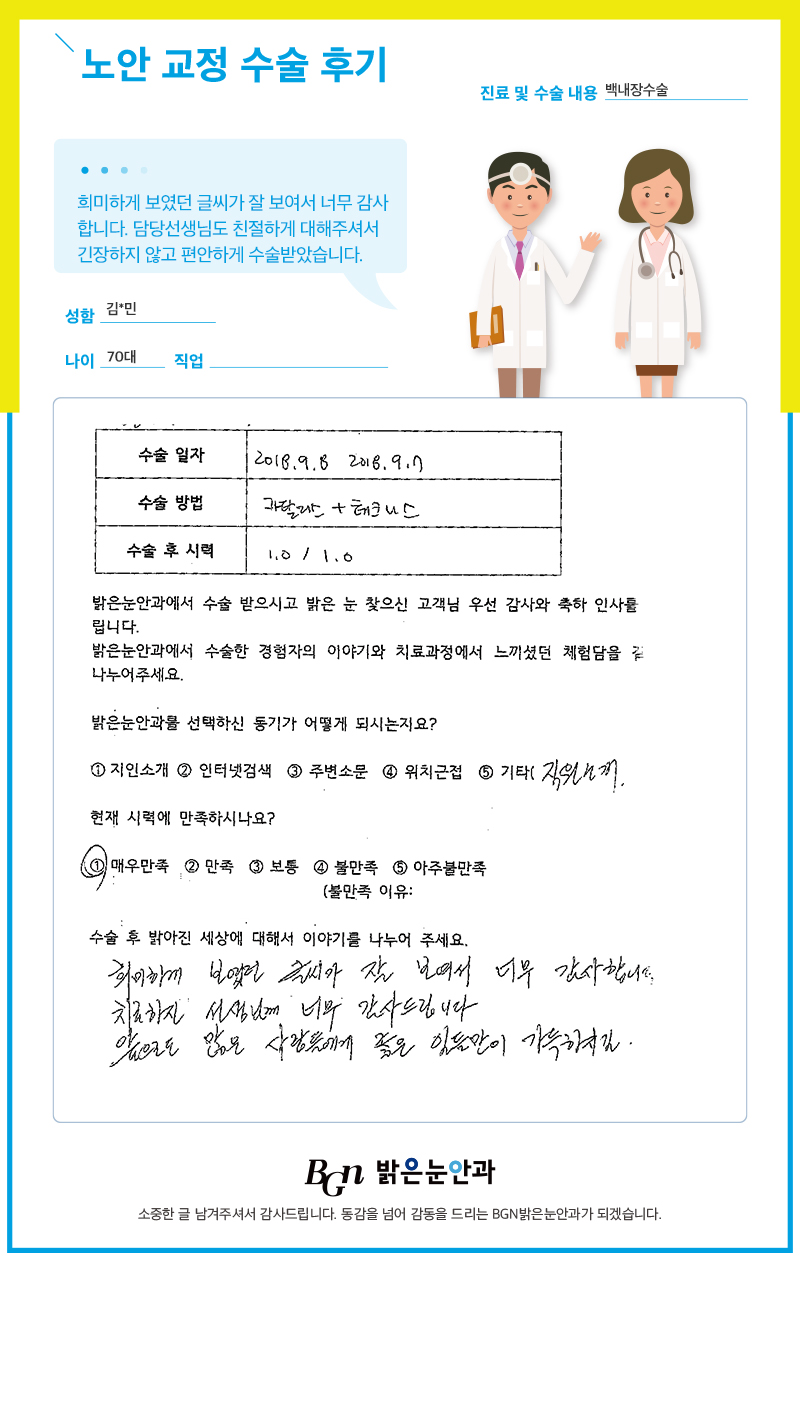 노안 교정 수술 후기
진료 및 수술 내용 백내장수술
희미하게 보였던 글씨가 잘 보여서 너무 감사
합니다. 담당선생님도 친절하게 대해주셔서
긴장하지 않고 편안하게 수술받았습니다.
성함 김*민
나이 70대 직업
수술 일자 2018.9.8 2018.9.17
수술 방법 카탈리스 + 테크니스
수술 후 시력 1.0 / 1.0
밝은눈안과에서 수술 받으시고 밝은 눈 찾으신 고객님 우선 감사와 축하 인사를
립니다.
밝은눈안과에서 수술한 경험자의 이야기와 치료과정에서 느끼셨던 체험담을
나누어주세요.
밝은눈안과를 선택하신 동기가 어떻게 되시는지요?
① 지인소개 ② 인터넷검색 ③ 주변소문 ④ 위치근접 ⑤ 기타( 직원소개.
현재 시력에 만족하시나요?
① 매우만족 ② 만족 ③ 보통 ④ 불만족 ⑤ 아주불만족
(불만족 이유:
수술 후 밝아진 세상에 대해서 이야기를 나누어 주세요.
희미하게 보였던 글씨가 잘 보여서 너무 감사합니다.
치료하신 선생님께 너무 감사드립니다
앞으로도 많은 사람들에게 좋은 일들만이 가득하시길.
BGn 밝은눈안과
소중한 글 남겨주셔서 감사드립니다. 동감을 넘어 감동을 드리는 BGN밝은눈안과가 되겠습니다.